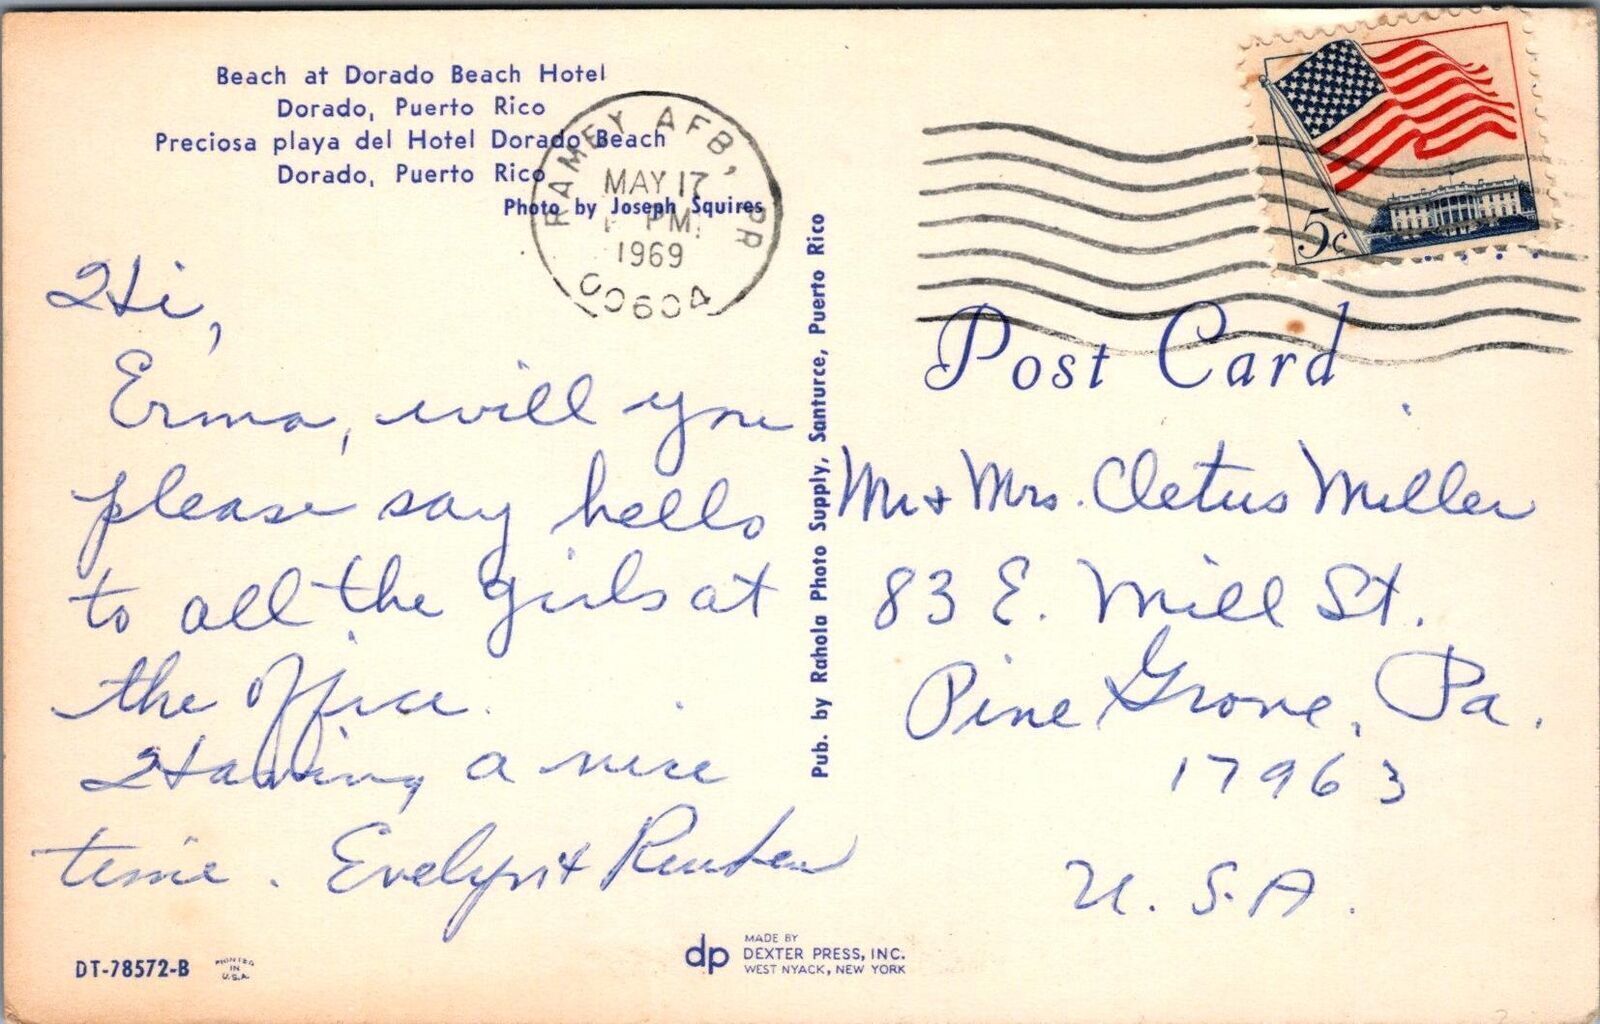 Beach at Dorado Beach Hotel
Dorado, Puerto Rico
Preciosa playa del Hotel Dorado Beach
Dorado, Puerto Rico
Photo by Joseph Squires
RAMEY AFB, PR
MAY 17
PM
1969
00604
5c
Hi,
Erma, will you
please say hello
to all the girls at
the office.
Having a nice
time. Evelyn & Reuben
Pub. by Rahola Photo Supply, Santurce, Puerto Rico
Post Card
Mr & Mrs. Cletus Miller
83 E. Mill St.
Pine Grove, Pa.
17963
U.S.A.
DT-78572-B
PRINTED
IN
U.S.A.
dp
MADE BY
DEXTER PRESS, INC.
WEST NYACK, NEW YORK